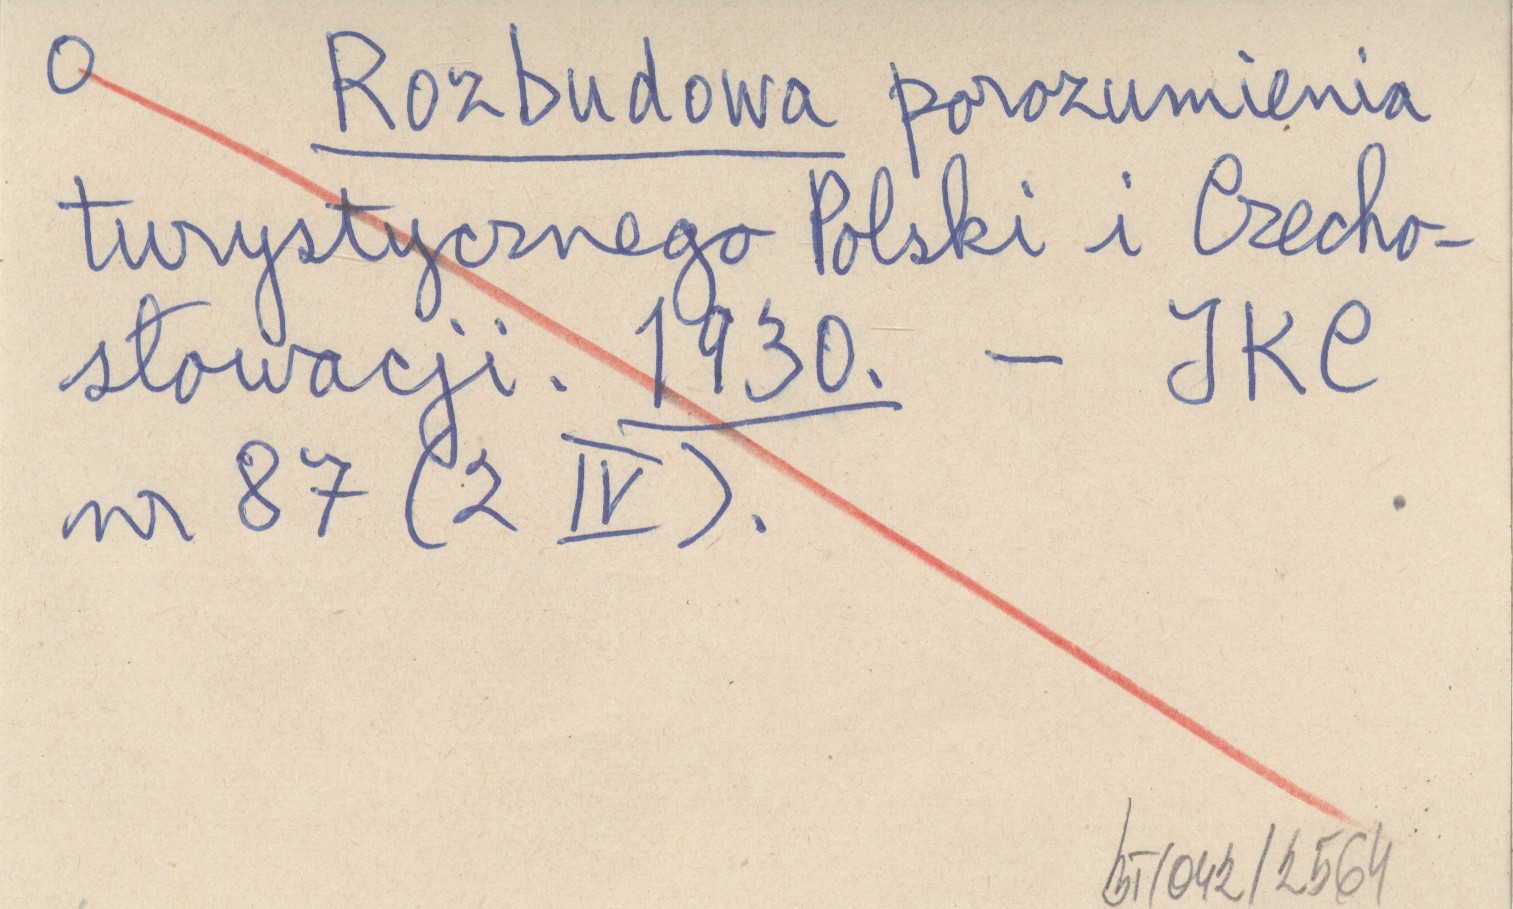 O Rozbudowa porozumienia
turystycznego Polski i Czecho-
słowacji. 1930. — IKC
nr 87 (2 IV).
BT/042/2564